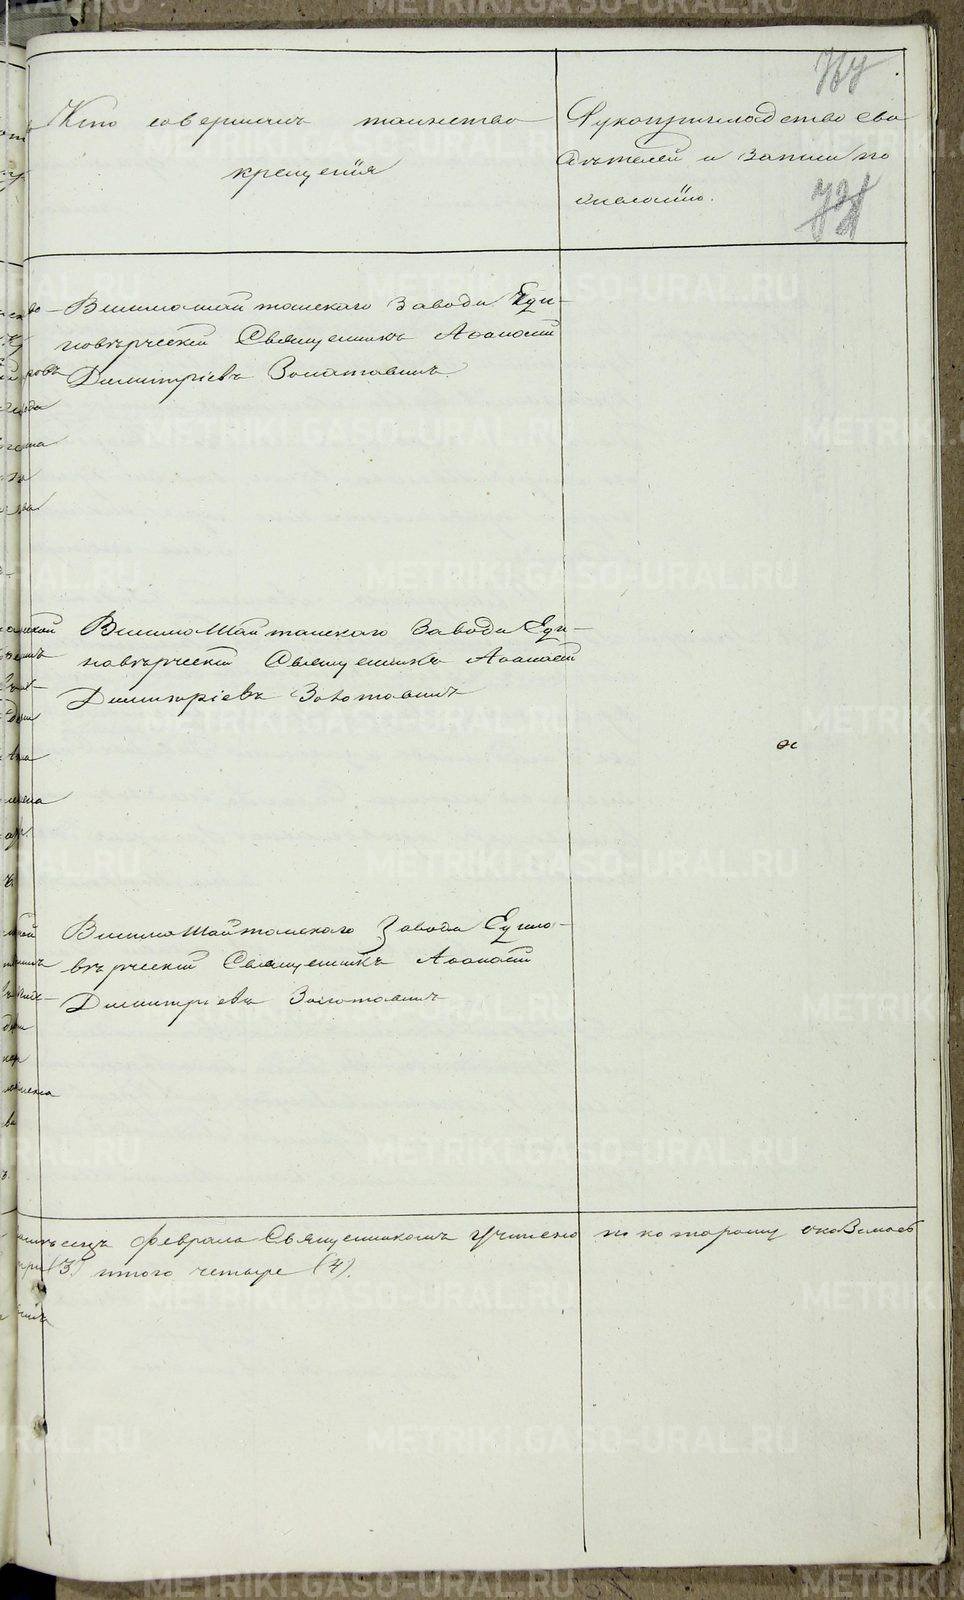 Кто совершилъ таинство
крещенія
Рукоприкладство сви
дѣтелей и записи по
желанію.
Висимошайтанскаго Завода Еди-
новѣрческій Священникъ Аѳанасій
Димитріевъ Золотавинъ
ВисимоШайтанскаго Завода Еди-
новѣрческій Священникъ Аѳанасій
Димитріевъ Золотавинъ
ВисимоШайтанскаго Завода Едино-
вѣрческій Священникъ Аѳанасій
Димитріевъ Золотавинъ
февраль Священникомъ учинено по которому оказалось
(3) итого четыре (4).
METRIKI.GASO-URAL.RU